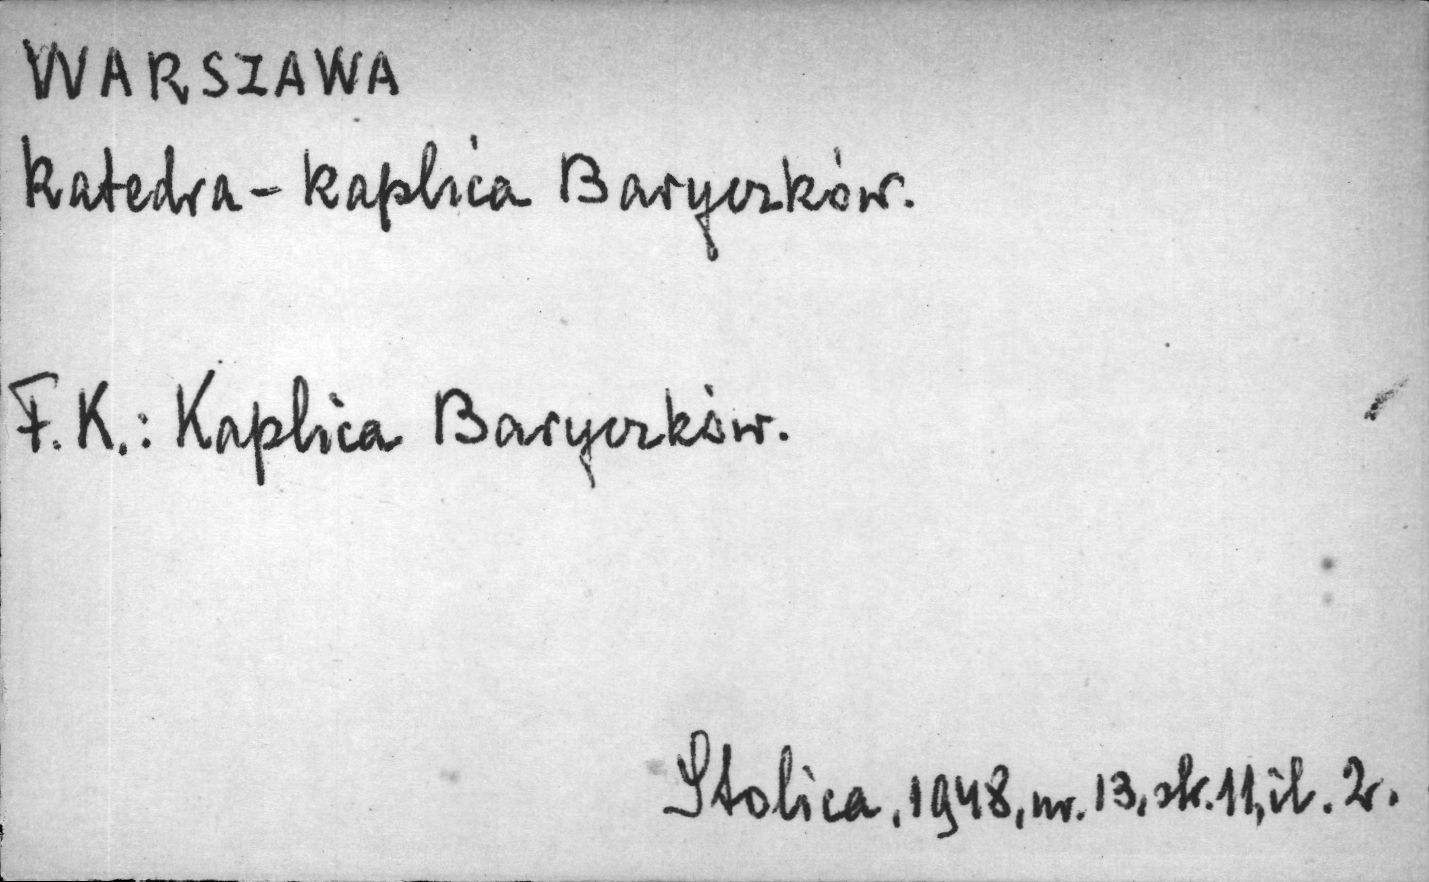 WARSZAWA
katedra - kaplica Baryczków.
F. K.: Kaplica Baryczków.
Stolica, 1948, nr. 13, str. 11, il. 2.